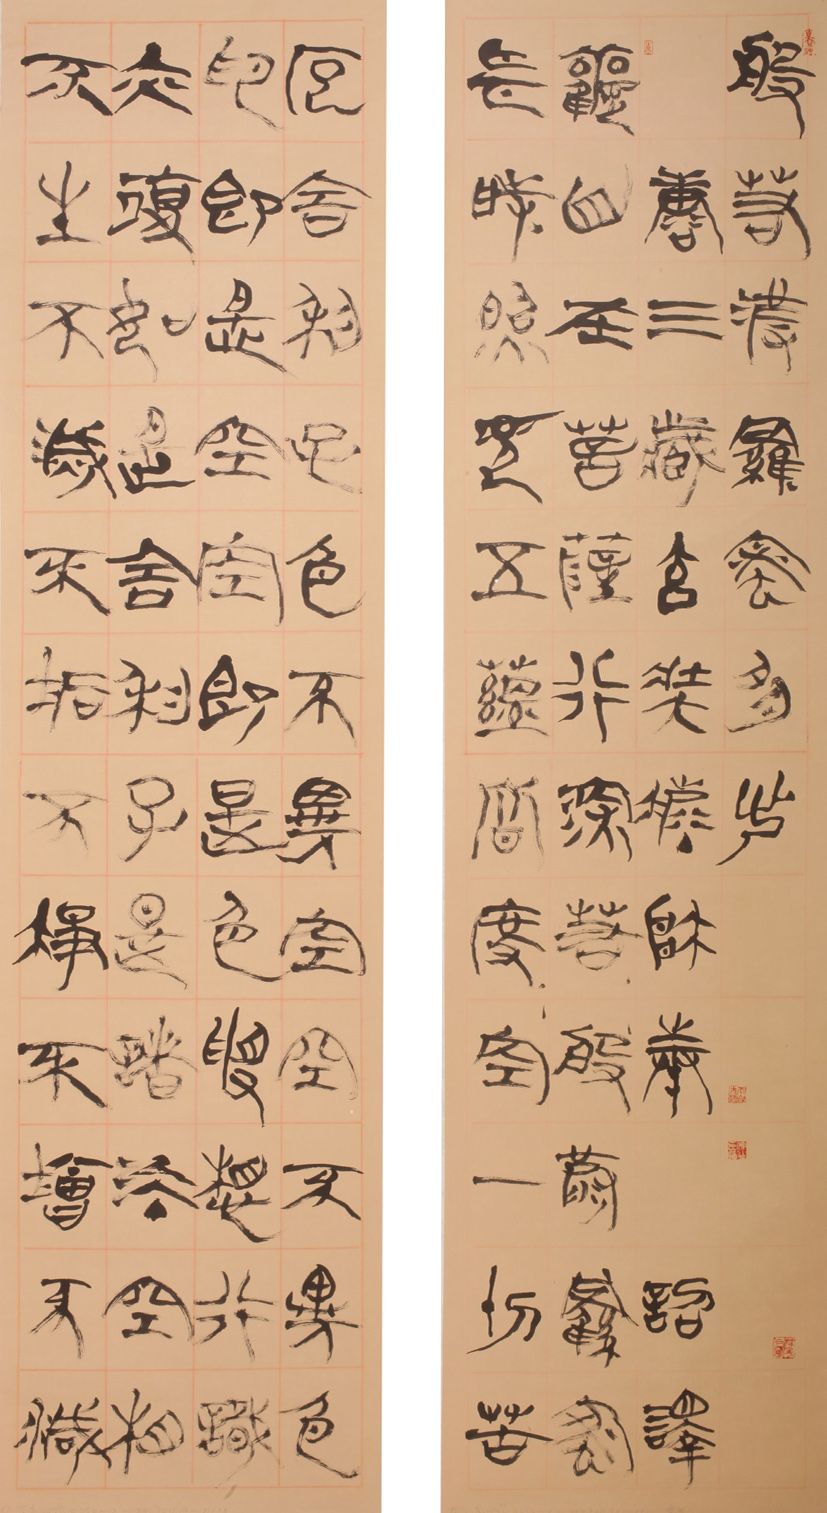 般若波羅蜜多
唐三藏玄奘法師奉詔譯
觀自在菩薩行深若般波羅蜜
多時照見五蘊皆度空一切苦
厄舍利子色不異空空不異色
色即是空空即是色受想行識
亦復如是舍利子是諸法空相
不生不滅不垢不淨不增不減